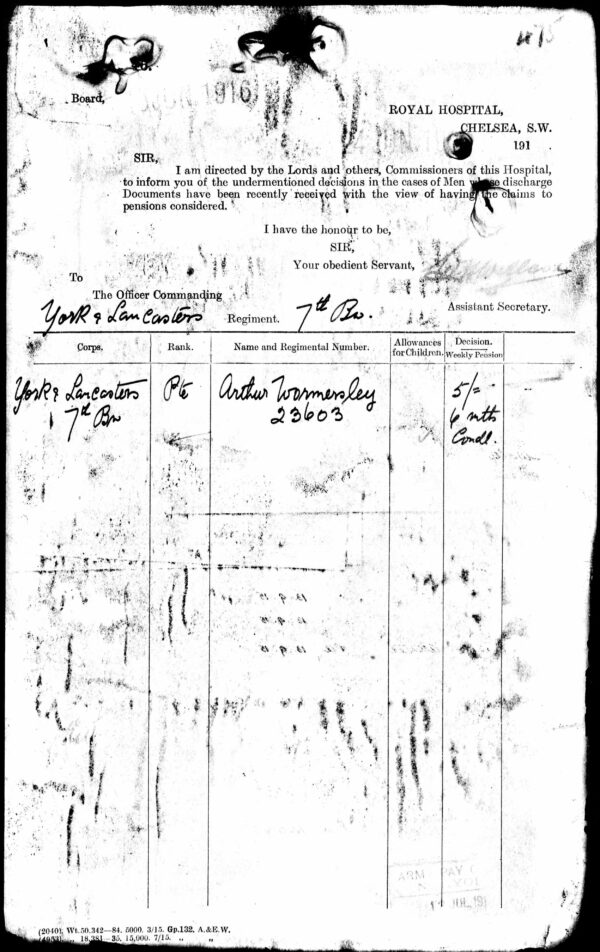 Board,
ROYAL HOSPITAL,
CHELSEA, S.W.
191 .
SIR,
I am directed by the Lords and others, Commissioners of this Hospital,
to inform you of the undermentioned decisions in the cases of Men whose discharge
Documents have been recently received with the view of having the claims to
pensions considered.
I have the honour to be,
SIR,
Your obedient Servant,
To
The Officer Commanding
Assistant Secretary.
York & Lancasters Regiment. 7th Bn.
Corps. Rank. Name and Regimental Number. Allowances for Children. Decision. Weekly Pension
York & Lancasters Pte Arthur Wormersley 5/=
7th Bn 23603 6 mths
Condl.
(2040). Wt.50,342—84. 5000. 3/15. Gp.132. A.&E.W.
18,381—35. 15,000. 7/15. „ „